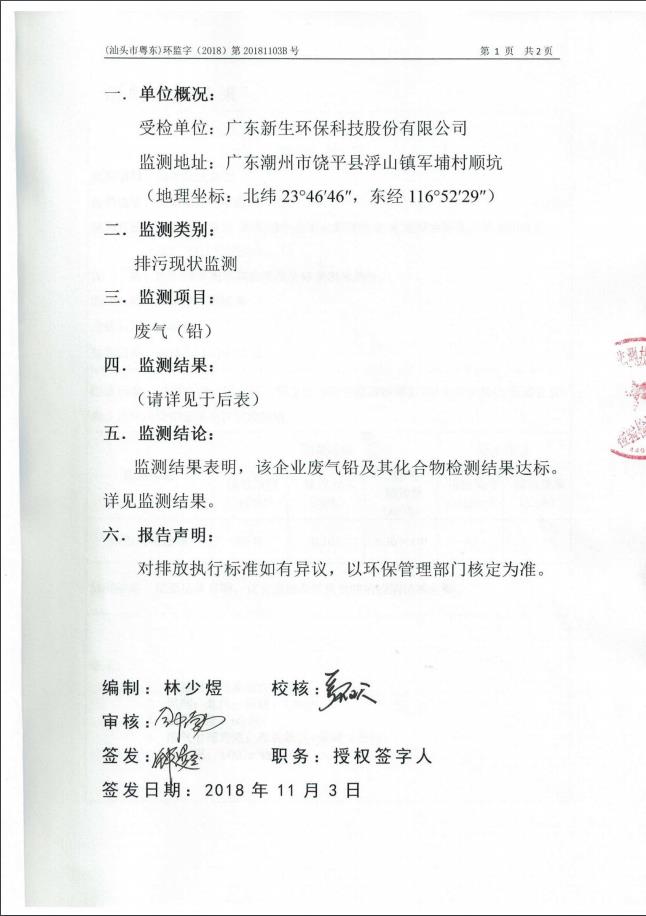 (汕头市粤东)环监字（2018）第 20181103B 号 第 1 页 共2页
一．单位概况：
受检单位：广东新生环保科技股份有限公司
监测地址：广东潮州市饶平县浮山镇军埔村顺坑
（地理坐标：北纬 23°46′46″，东经 116°52′29″）
二．监测类别：
排污现状监测
三．监测项目：
废气（铅）
四．监测结果：
（请详见于后表）
五．监测结论：
监测结果表明，该企业废气铅及其化合物检测结果达标。
详见监测结果。
六．报告声明：
对排放执行标准如有异议，以环保管理部门核定为准。
编制：林少煜 校核：
审核：
签发： 职务：授权签字人
签发日期：2018 年 11 月 3 日